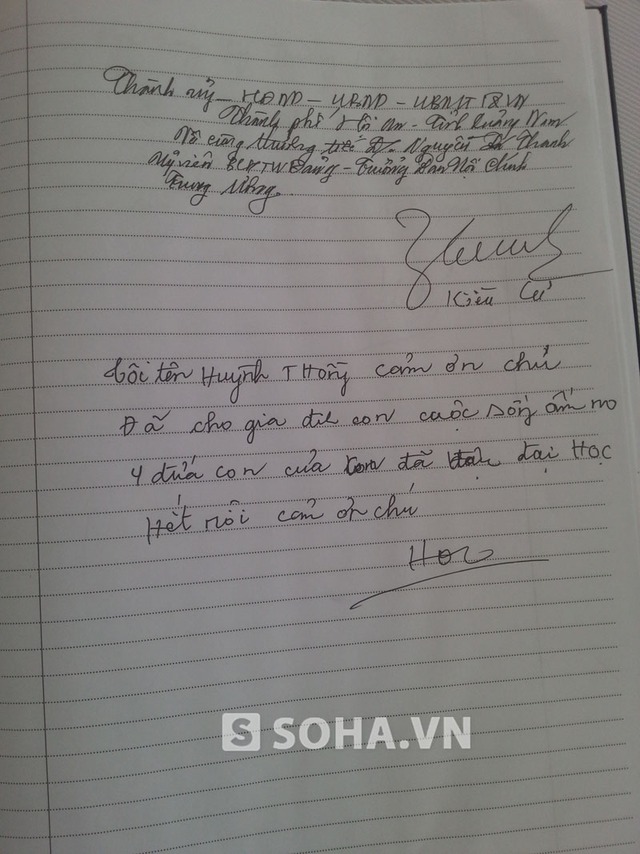 Thành ủy - HĐND - UBND - UBMTTQVN
Thành phố Hội An - Tỉnh Quảng Nam
Vô cùng thương tiếc Đ/c Nguyễn Bá Thanh
Ủy viên BCHTW Đảng - Trưởng Ban Nội Chính
Trung Ương.
Kiều Cư
Tôi tên Huỳnh T Hồng cảm ơn chú
Đã cho gia đìl con cuộc sống ấm no
4 đứa con của con đã đại Học
Hết rồi cảm ơn chú
SOHA.VN